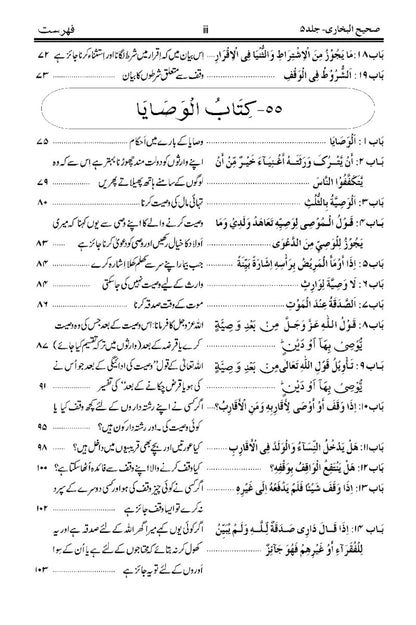 صحيح البخاری - جلد ۵ ii فهرست
باب ۱۸: مَا يَجُوْزُ مِنَ الْاِشْتِرَاطِ وَالثُّنْيَا فِي الْاِقْرَارِ ... اس بیان میں کہ اقرار میں شرط لگانا اور استثناء کرنا جائز ہے ۷۲
باب ۱۹: اَلشُّرُوْطُ فِي الْوَقْفِ ... وقف سے متعلق شرطوں کا بیان ... ۷۳
۵۵- كِتَابُ الْوَصَايَا
باب ۱: اَلْوَصَايَا ... وصایا کے بارے میں احکام ... ۷۵
باب ۲: أَنْ يَّتْرُكَ وَرَثَتَهُ أَغْنِيَاءَ خَيْرٌ مِّنْ أَنْ اپنے وارثوں کو دولت مند چھوڑنا بہتر ہے اس سے کہ وہ
يَّتَكَفَّفُوا النَّاسَ ... لوگوں کے سامنے ہاتھ پھیلاتے پھریں ... ۷۹
باب ۳: اَلْوَصِيَّةُ بِالثُّلُثِ ... تہائی مال کی وصیت کرنا ... ۸۰
باب ۴: قَوْلُ الْمُوْصِي لِوَصِيِّهِ تَعَاهَدْ وَلَدِي وَمَا وصیت کرنے والے کا اپنے وصی سے یوں کہنا کہ میری
يَجُوْزُ لِلْوَصِيِّ مِنَ الدَّعْوٰى ... اولاد کا خیال رکھیو اور وصی کو دعویٰ کرنا جائز ہے ... ۸۳
باب ۵: إِذَا أَوْمَأَ الْمَرِيْضُ بِرَأْسِهِ إِشَارَةً بَيِّنَةً ... جب بیمار اپنے سر سے کھلم کھلا اشارہ کرے ... ۸۴
باب ۶: لَا وَصِيَّةَ لِوَارِثٍ ... وارث کے لیے وصیت نہیں کی جا سکتی ... ۸۴
باب ۷: اَلصَّدَقَةُ عِنْدَ الْمَوْتِ ... موت کے وقت صدقہ کرنا ... ۸۶
باب ۸: قَوْلُ اللّٰهِ عَزَّ وَجَلَّ مِنْ بَعْدِ وَصِيَّةٍ اللہ عزوجل کا فرمانا: اس وصیت کے بعد جس کی وہ وصیت
يُّوْصِي بِهَا أَوْ دَيْنٍ ... کرے یا قرضہ کے بعد (وارثوں میں ترکہ تقسیم کیا جائے) ۸۷
باب ۹: تَأْوِيْلُ قَوْلِ اللّٰهِ تَعَالٰى مِنْ بَعْدِ وَصِيَّةٍ اللہ تعالیٰ کے قول: "وصیت کی ادائیگی کے بعد جو اُس نے
يُّوْصِي بِهَا أَوْ دَيْنٍ ... کی ہو یا قرض چکانے کے بعد" کی تفسیر ... ۹۱
باب ۱۰: إِذَا وَقَفَ أَوْ أَوْصٰى لِأَقَارِبِهِ وَمَنِ الْأَقَارِبُ؟ ... اگر کسی نے اپنے رشتہ داروں کے لئے کچھ وقف کیا یا
کوئی وصیت کی۔ اور رشتہ دار کون ہیں؟ ... ۹۵
باب ۱۱: هَلْ يَدْخُلُ النِّسَاءُ وَالْوَلَدُ فِي الْأَقَارِبِ ... کیا عورتیں اور بچے بھی قریبیوں میں داخل ہیں؟ ... ۹۸
باب ۱۲: هَلْ يَنْتَفِعُ الْوَاقِفُ بِوَقْفِهِ؟ ... کیا وقف کرنے والا اپنے وقف سے فائدہ اٹھا سکتا ہے؟ ۱۰۰
باب ۱۳: إِذَا وَقَفَ شَيْئًا فَلَمْ يَدْفَعْهُ إِلٰى غَيْرِهِ ... اگر کسی نے کوئی چیز وقف کی ہو اور کسی دوسرے کے سپرد
نہ کرے تو ایسا وقف جائز ہے ... ۱۰۲
باب ۱۴: إِذَا قَالَ دَارِي صَدَقَةٌ لِلّٰهِ وَلَمْ يُبَيِّنْ اگر کوئی یوں کہے میرا گھر اللہ کے لئے صدقہ ہے اور یہ
لِلْفُقَرَاءِ أَوْ غَيْرِهِمْ فَهُوَ جَائِزٌ ... کھول کر نہ بتائے کہ محتاجوں کے لئے ہے یا اُن کے سوا
اوروں کے لئے تو یہ جائز ہے ... ۱۰۳